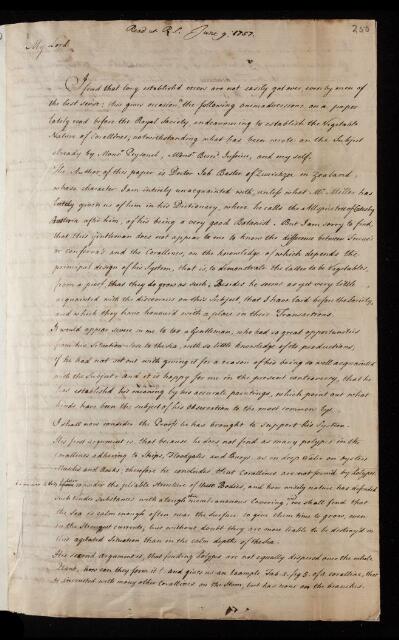 Read at R.S. June 9. 1757.
200
My Lord
I find that long establish'd errors are not easily got over, even by men of
the best sense; this gives occasion to the following animadversions on a paper
lately read before the Royal Society, endeavouring to establish the Vegetable
Nature of Corallines; notwithstanding what has been wrote on the Subject
already by Monsr Peysonel, Monsr Bern: Jussieu, and my self.
The Author of this paper is Doctor Job Baster of Zurichzee in Zealand,
whose character I am intirely unacquainted with, unless what Mr. Miller has
lately given us of him in his Dictionary, where he calls the
after him, of his being a very good Botanist. But I am sorry to find,
that this Gentleman does not appear to me to know the difference between
or conferva's and the Corallines, on the knowledge of which depends the
principal design of his System, that is, to demonstrate the latter to be Vegetables,
from a proof that they do grow as such. Besides he seems as yet very little
acquainted with the discoveries on this Subject, that I have laid before the Society,
and which they have honoured with a place in their Transactions.
It would appear severe in me to tax a Gentleman, who had so great opportunities
from his Situation close to the sea, with so little knowledge of its productions,
if he had not set out with giving it for a reason of his being so well acquainted
with the Subject: and it is happy for me in the present controversy, that he
has establish'd his meaning by his accurate paintings, which point out what
kinds have been the subject of his observation to the most common eye.
I shall now consider the Proofs he has brought to support his System.
His first argument is, that because he does not find as many polypes in the
corallines adhering to Ships, Floodgates and Buoys, as in deep water on oysters
Muscles and Rocks; therefore he concludes that Corallines are not form'd by Polypes.
consider the pliable Structure of their Bodies, and how nicely nature has defended
such tender Substances with a tough membranaceous Covering, we shall find that
the Sea is calm enough often near the surface to give them time to grow, even
in the Strongest currents; but without doubt they are more liable to be destroy'd in
this agitated Situation than in the calm depths of the Sea.
His second Argument is, that finding Polypes are not equally dispersed over the whole
Plant, how can they form it? and gives us an Example Tab. 1. fig 5. of a coralline, that
is invested with many other Corallines on the Stem, but has none on the branches.